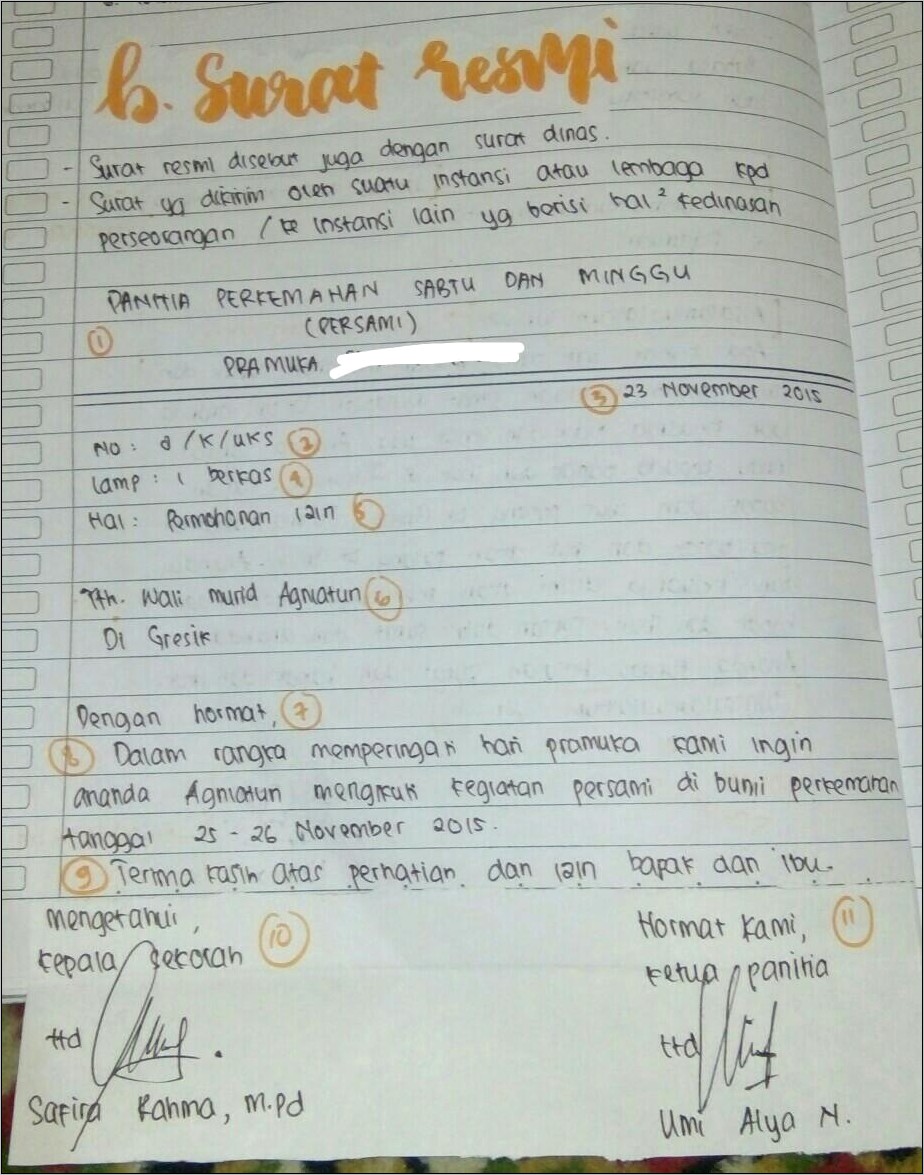 b. Surat resmi
- Surat resmi disebut juga dengan surat dinas.
- Surat yg dikirim oleh suatu instansi atau lembaga kpd
perseorangan / ke instansi lain yg berisi hal² kedinasan
PANITIA PERKEMAHAN SABTU DAN MINGGU
(PERSAMI)
①
PRAMUKA
③ 23 November 2015
No : 8/K/UKS ②
Lamp : 1 berkas ④
Hal : Permohonan izin ⑤
Yth. Wali murid Agniatun ⑥
Di Gresik
Dengan hormat, ⑦
⑧ Dalam rangka memperingati hari pramuka kami ingin
ananda Agniatun mengikuti kegiatan persami di bumi perkemahan
tanggal 25 - 26 November 2015.
⑨ Terima kasih atas perhatian dan izin bapak dan ibu.
mengetahui, ⑩
kepala sekolah
ttd
Safira Rahma, M.Pd
Hormat kami, ⑪
Ketua panitia
ttd
Umi Alya N.